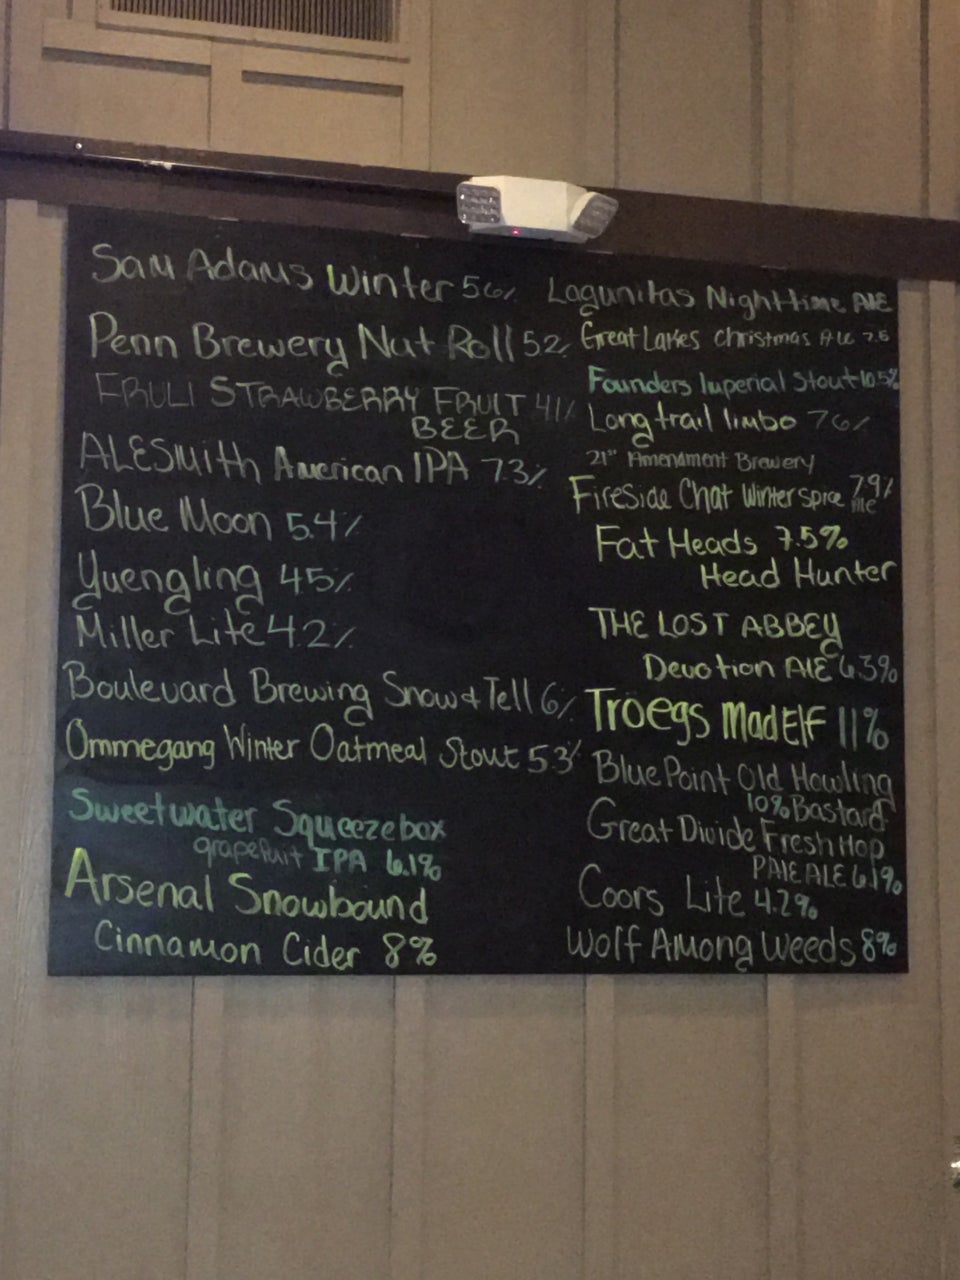 Sam Adams Winter 56%
Penn Brewery Nut Roll 52%
FRULI STRAWBERRY FRUIT 41%
BEER
ALESMITH American IPA 7.3%
Blue Moon 5.4%
Yuengling 45%
Miller Lite 4.2%
Boulevard Brewing Snow & Tell 6%
Ommegang Winter Oatmeal Stout 53%
Sweetwater Squeezebox
grapefruit IPA 6.1%
Arsenal Snowbound
Cinnamon Cider 8%
Lagunitas Nighttime ALE
Great Lakes Christmas Ale 7.5
Founders Imperial Stout 10.5%
Long trail limbo 76%
21st Amendment Brewery
Fireside Chat Winter spice 7.9%
Ale
Fat Heads 7.5%
Head Hunter
THE LOST ABBEY
Devotion ALE 6.3%
Troegs Mad Elf 11%
Blue Point Old Howling
10% Bastard
Great Divide Fresh Hop
PALE ALE 6.1%
Coors Lite 4.2%
Wolf Among Weeds 8%